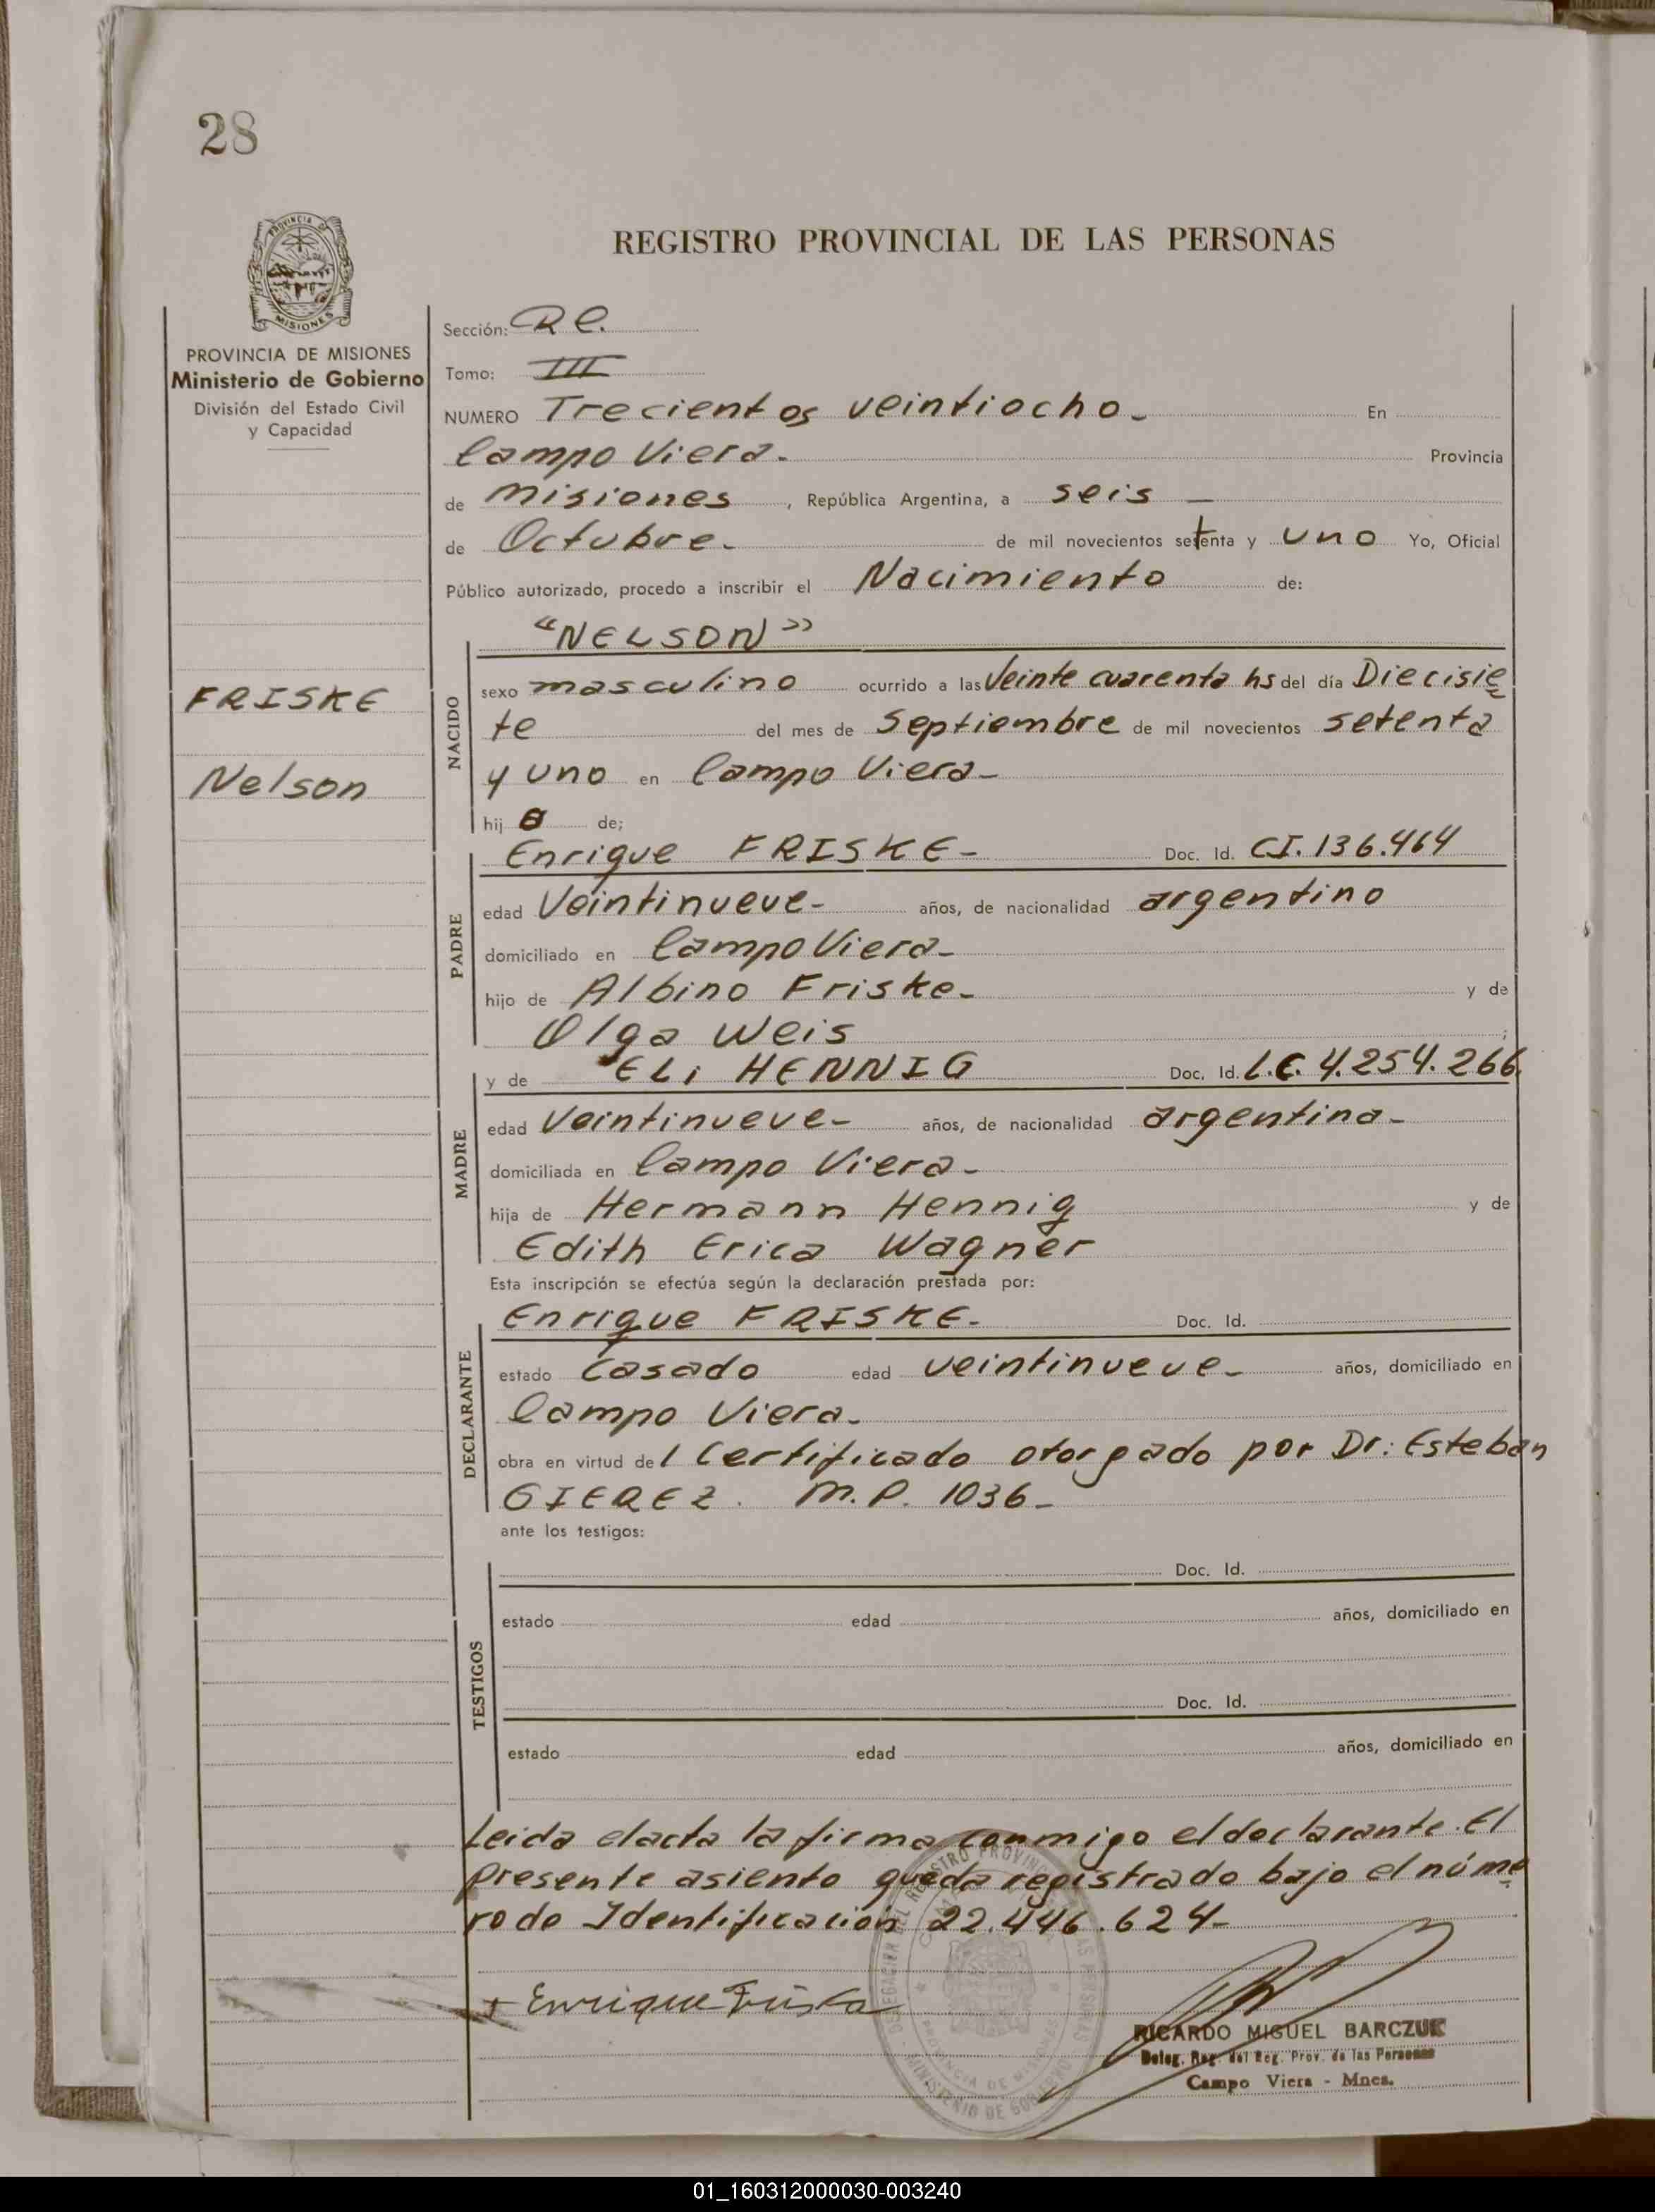 28
REGISTRO PROVINCIAL DE LAS PERSONAS
PROVINCIA DE MISIONES
Ministerio de Gobierno
División del Estado Civil
y Capacidad
FRISKE
Nelson
Sección: R C.
Tomo: III
NUMERO Trecientos veintiocho. En
Campo Viera. Provincia
de Misiones, República Argentina, a seis
de Octubre. de mil novecientos setenta y uno Yo, Oficial
Público autorizado, procedo a inscribir el Nacimiento de:
"NELSON"
NACIDO
sexo masculino ocurrido a las Veinte cuarenta hs del día Diecisie
te del mes de Septiembre de mil novecientos setenta
y uno en Campo Viera-
hijo de;
PADRE
Enrique FRISKE- Doc. Id. CI. 136.464
edad Veintinueve- años, de nacionalidad argentino
domiciliado en Campo Viera-
hijo de Albino Friske- y de
Olga Weis ;
MADRE
y de ELI HENNIG Doc. Id. L.C. 4.254.266.
edad Veintinueve- años, de nacionalidad argentina-
domiciliada en Campo Viera-
hija de Hermann Hennig y de
Edith Erica Wagner
Esta inscripción se efectúa según la declaración prestada por:
DECLARANTE
Enrique FRISKE- Doc. Id.
estado Casado edad veintinueve- años, domiciliado en
Campo Viera-
obra en virtud del Certificado otorgado por Dr: Esteban
GIEREZ. M.P. 1036-
ante los testigos:
TESTIGOS
Doc. Id.
estado edad años, domiciliado en
Doc. Id.
estado edad años, domiciliado en
Leida el acta la firma conmigo el declarante. El
presente asiento queda registrado bajo el núme
ro de Identificación 22.446.624-
+ Enrique Friske
RICARDO MIGUEL BARCZUK
Deleg. Reg. del Reg. Prov. de las Personas
Campo Viera - Mnes.
01_160312000030-003240